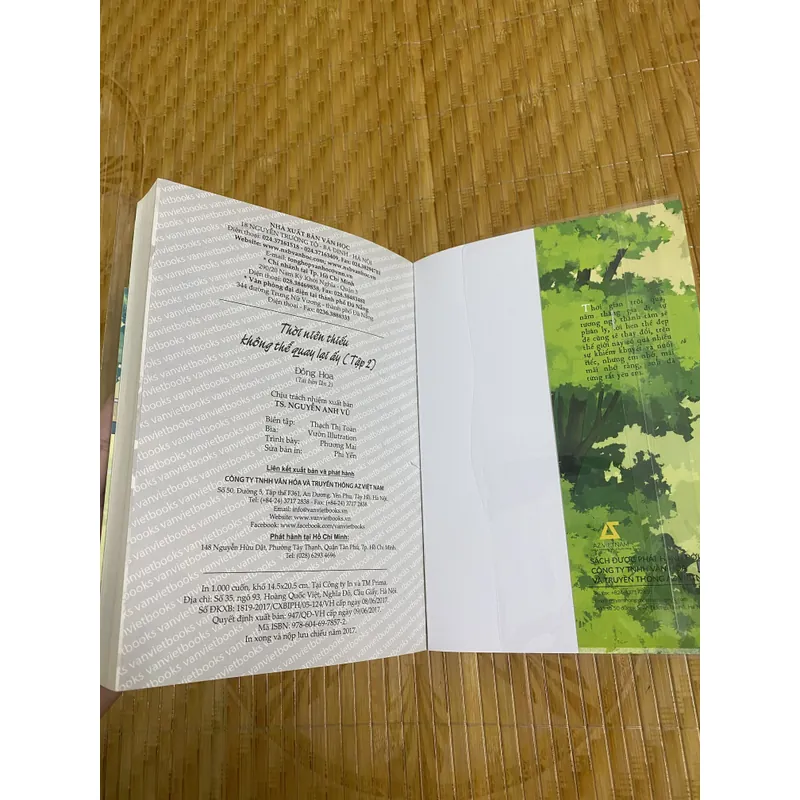 NHÀ XUẤT BẢN VĂN HỌC
18 NGUYỄN TRƯỜNG TỘ - BA ĐÌNH - HÀ NỘI
Điện thoại: 024.37161518 - 024.37163409, Fax: 024.38294781
Website: www.nxbvanhoc.com; www.nxbvanhoc.vn
E-mail: tonghopvanhoc@vnn.vn
* Chi nhánh tại Tp. Hồ Chí Minh
290/20 Nam Kỳ Khởi Nghĩa - Quận 3
Điện thoại: 028.38469858, Fax: 028.38483481
* Văn phòng đại diện tại thành phố Đà Nẵng
344 đường Trưng Nữ Vương - thành phố Đà Nẵng
Điện thoại - Fax: 0236.3888333
Thời niên thiếu
không thể quay lại ấy (Tập 2)
Đồng Hoa
(Tái bản lần 2)
Chịu trách nhiệm xuất bản
TS. NGUYỄN ANH VŨ
Biên tập: Thạch Thị Toàn
Bìa: Vườn Illutration
Trình bày: Phương Mai
Sửa bản in: Phi Yến
Liên kết xuất bản và phát hành
CÔNG TY TNHH VĂN HÓA VÀ TRUYỀN THÔNG AZ VIỆT NAM
Số 50, Đường 5, Tập thể F361, An Dương, Yên Phụ, Tây Hồ, Hà Nội.
Tel: (+84-24) 3717 2838 - Fax: (+84-24) 3717 2838
Email: info@vanvietbooks.vn
Website: www.vanvietbooks.vn
Facebook: www.facebook.com/vanvietbooks
Phát hành tại Hồ Chí Minh:
148 Nguyễn Hữu Dật, Phường Tây Thạnh, Quận Tân Phú, Tp. Hồ Chí Minh.
Tel: (028) 6293 4696
In 1.000 cuốn, khổ 14.5x20.5 cm, Tại Công ty In và TM Prima.
Địa chỉ: Số 35, ngõ 93, Hoàng Quốc Việt, Nghĩa Đô, Cầu Giấy, Hà Nội.
Số ĐKXB: 1819-2017/CXBIPH/05-124/VH cấp ngày 08/06/2017.
Quyết định xuất bản: 947/QĐ-VH cấp ngày 09/06/2017.
Mã ISBN: 978-604-69-7857-2.
In xong và nộp lưu chiểu năm 2017.
Thời gian trôi qua,
năm tháng phôi pha, cứ
tưởng ngã thành tâm sẽ
phân ly, lời hẹn thề đẹp
đẽ cũng sẽ thay đổi, trên
thế giới này có quá nhiều
sự khiếm khuyết và nuối
tiếc, nhưng em nhớ, mãi
mãi nhớ rằng, anh đã
từng rất yêu em.
AZ VIETNAM
SÁCH ĐƯỢC PHÁT HÀNH
CÔNG TY TNHH VĂN
VÀ TRUYỀN THÔNG